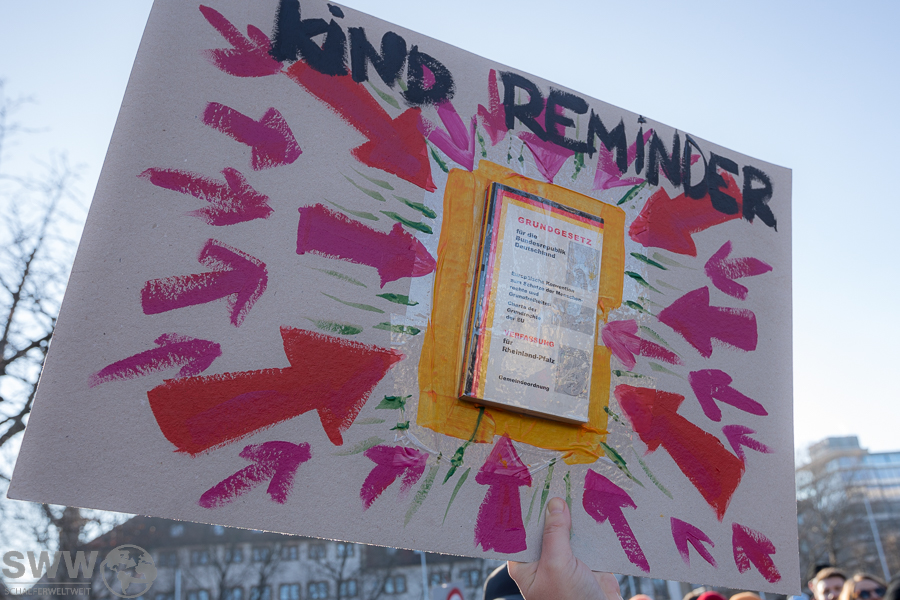 KIND REMINDER
GRUNDGESETZ
für die
Bundesrepublik
Deutschland
Europäische Konvention
zum Schutze der Menschen-
rechte und
Grundfreiheiten
Charta der
Grundrechte
der EU
VERFASSUNG
für
Rheinland-Pfalz
Gemeindeordnung
SWW
SCHAEFERWELTWEIT